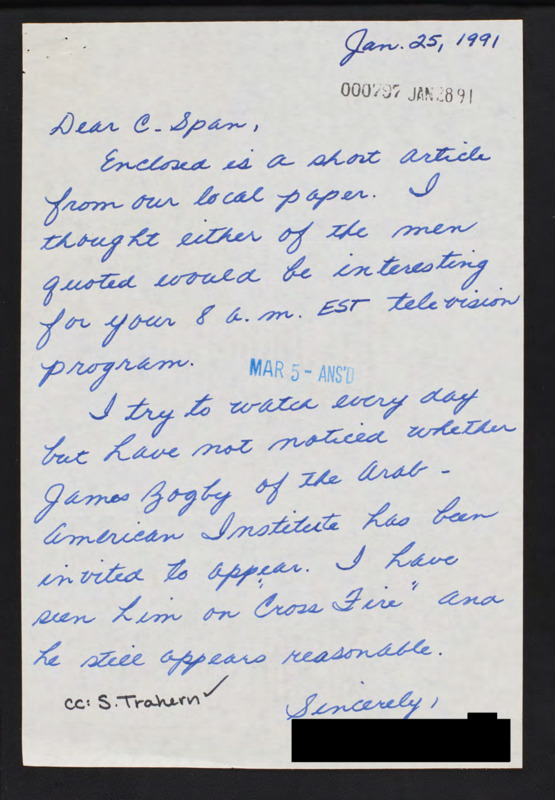 Jan. 25, 1991
000797 JAN 28 91
Dear C-Span,
Enclosed is a short article
from our local paper. I
thought either of the men
quoted would be interesting
for your 8 a.m. EST television
program.
MAR 5 - ANS'D
I try to watch every day
but have not noticed whether
James Zogby of the Arab-
American Institute has been
invited to appear. I have
seen him on "Cross Fire" and
he still appears reasonable.
cc: S. Trahern ✓
Sincerely,